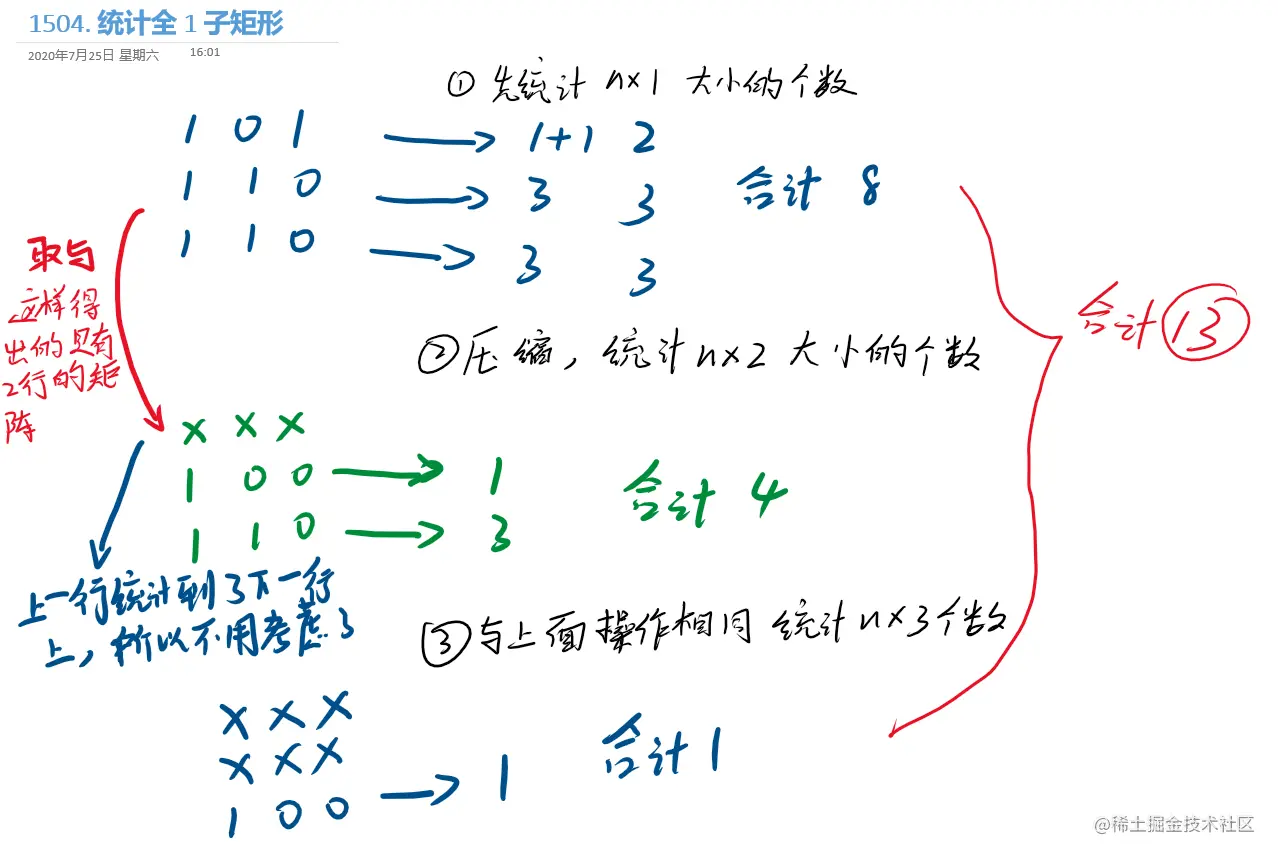 1504. 统计全 1 子矩形
2020年7月25日 星期六 16:01
① 先统计 n×1 大小的个数
1 0 1 → 1+1 2
1 1 0 → 3 3 合计 8
1 1 0 → 3 3
取与
这样得
出的只有
2行的矩
阵
合计 13
② 压缩，统计n×2 大小的个数
× × ×
1 0 0 → 1 合计 4
1 1 0 → 3
上一行统计到了下一行
上，所以不用考虑了
③ 与上面操作相同 统计n×3个数
× × ×
× × ×
1 0 0 → 1 合计 1
@稀土掘金技术社区